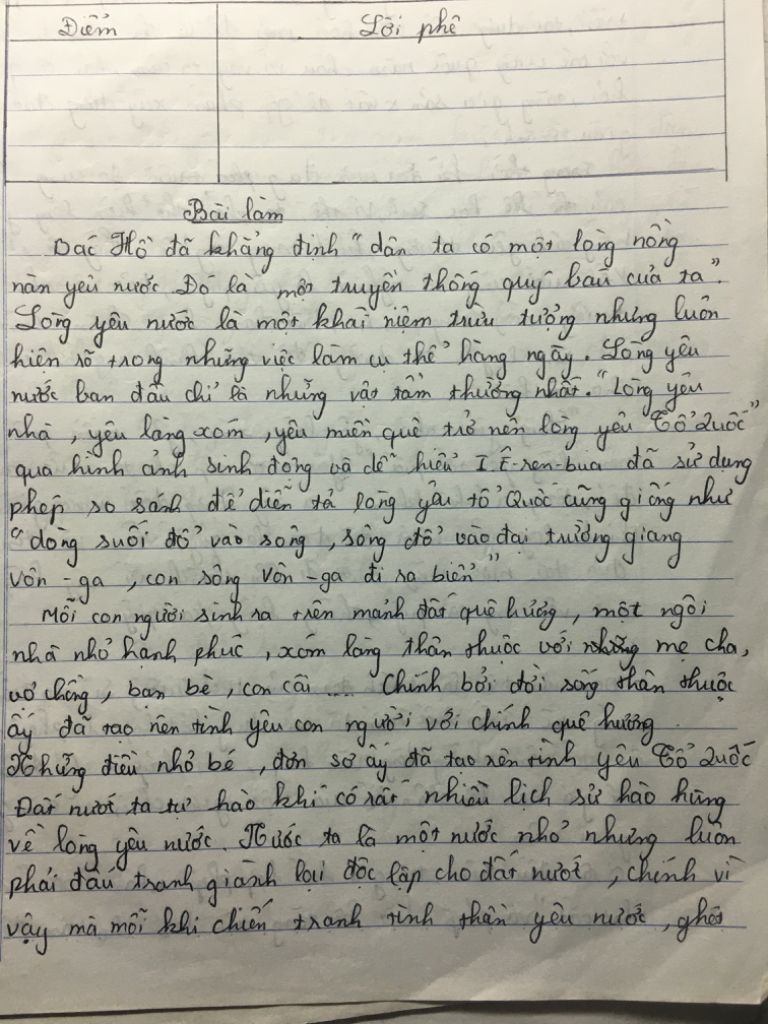 Điểm Lời phê
Bài làm
Bác Hồ đã khẳng định "dân ta có một lòng nồng
nàn yêu nước. Đó là một truyền thống quý báu của ta".
Lòng yêu nước là một khái niệm trừu tượng nhưng luôn
hiện rõ trong những việc làm cụ thể hàng ngày. Lòng yêu
nước ban đầu chỉ là những vật tầm thường nhất. "Lòng yêu
nhà, yêu làng xóm, yêu miền quê trở nên lòng yêu Tổ Quốc"
qua hình ảnh sinh động và dễ hiểu I.Ê-ren-bua đã sử dụng
phép so sánh để diễn tả lòng yêu tổ Quốc cũng giống như
"dòng suối đổ vào sông, sông đổ vào đại trường giang
Vôn-ga, con sông Vôn-ga đi ra biển".
Mỗi con người sinh ra trên mảnh đất quê hương, một ngôi
nhà nhỏ hạnh phúc, xóm làng thân thuộc với những mẹ cha,
vợ chồng, bạn bè, con cái .... Chính bởi đời sống thân thuộc
ấy đã tạo nên tình yêu con người với chính quê hương.
Những điều nhỏ bé, đơn sơ ấy đã tạo nên tình yêu Tổ Quốc
Đất nước ta tự hào khi có rất nhiều lịch sử hào hùng
về lòng yêu nước. Nước ta là một nước nhỏ nhưng luôn
phải đấu tranh giành lại độc lập cho đất nước, chính vì
vậy mà mỗi khi chiến tranh tinh thần yêu nước, ghét